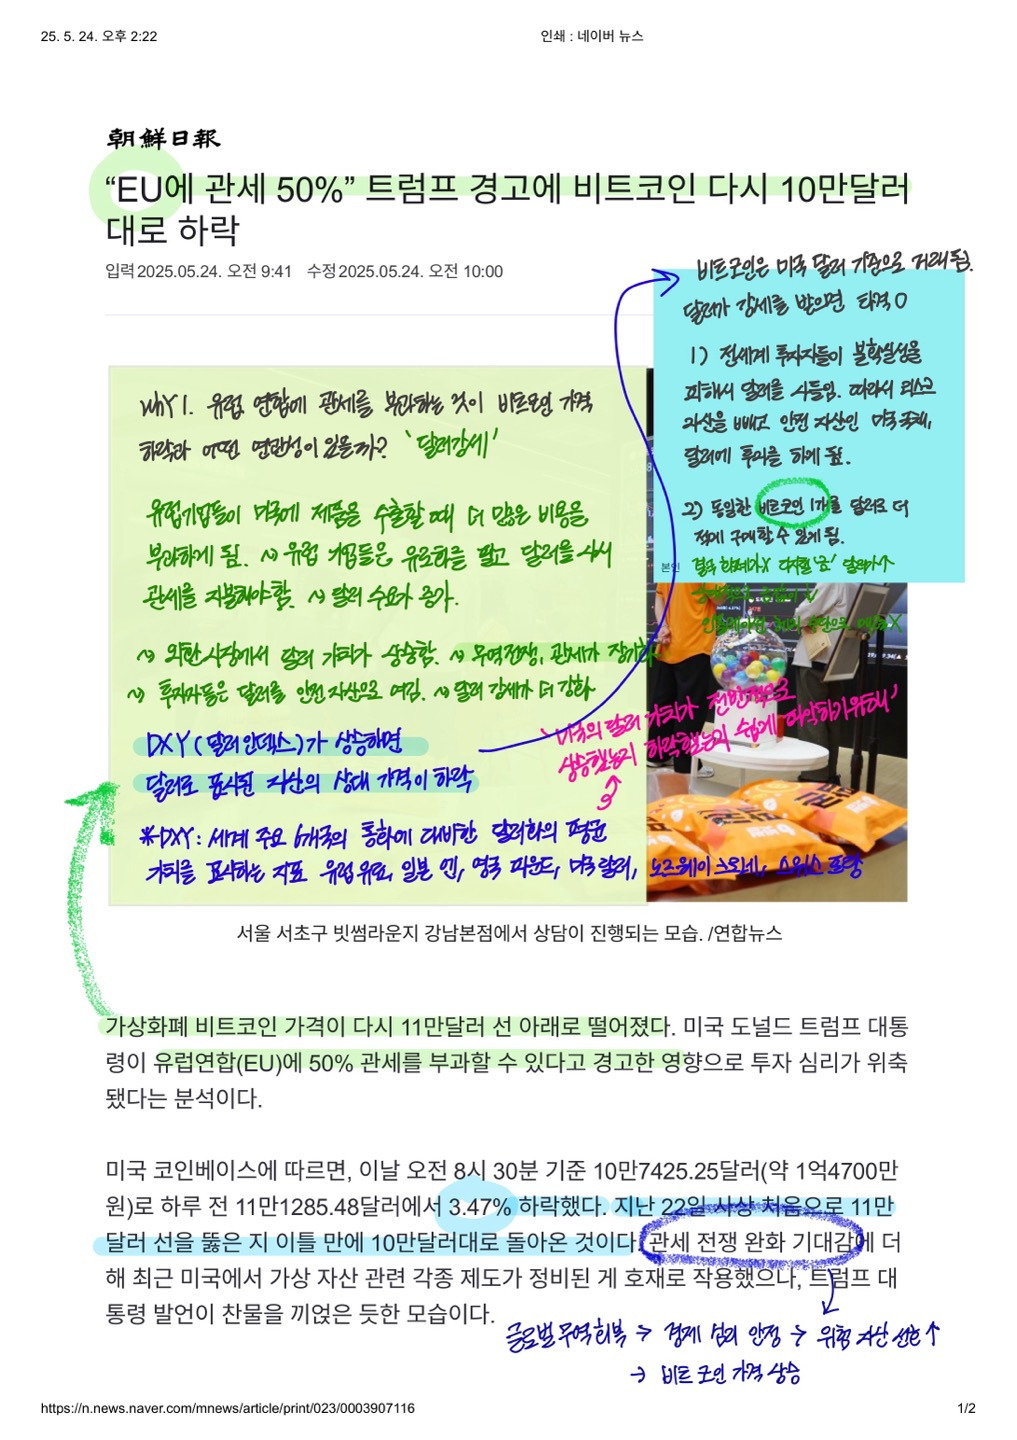 25. 5. 24. 오후 2:22
인쇄 : 네이버 뉴스
朝鮮日報
“EU에 관세 50%” 트럼프 경고에 비트코인 다시 10만달러
대로 하락
입력2025.05.24. 오전 9:41 수정2025.05.24. 오전 10:00
비트코인은 미국 달러 기준으로 거래됨.
달러가 강세를 받으면 타격 O
1) 전세계 투자자들이 불확실성을
피해서 달러를 사들임. 따라서 리스크
자산을 빼고 안전 자산인 미국 국채,
달러에 투자를 하게 됨.
2) 동일한 비트코인 1개를 달러로 더
적게 구매할 수 있게 됨.
결국 화폐가X 디지털 '금' 달러가↑
인플레이션 헤지 수단으로 매력X
본인
WhY 1. 유럽 연합에 관세를 부과하는 것이 비트코인 가격
하락과 어떤 연관성이 있을까? '달러강세'
유럽기업들이 미국에 제품을 수출할 때 더 많은 비용을
부과하게 됨. ~> 유럽 기업들은 유로화를 팔고 달러를 사서
관세를 지불해야함. ~> 달러 수요가 증가.
~> 외환시장에서 달러 가치가 상승함. ~> 무역전쟁, 관세가 장기화
~> 투자자들은 달러를 안전 자산으로 여김. ~> 달러 강세가 더 강화
DXY (달러 인덱스)가 상승하면
달러로 표시된 자산의 상대 가격이 하락
'미국의 달러 가치가 전반적으로
상승했는지 하락했는지 쉽게 파악하기위해'
*DXY: 세계 주요 6개국의 통화에 대비한 달러화의 평균
가치를 표시하는 지표 유럽 유로, 일본 엔, 영국 파운드, 미국 달러, 노르웨이 크로네, 스위스 프랑
서울 서초구 빗썸라운지 강남본점에서 상담이 진행되는 모습. /연합뉴스
가상화폐 비트코인 가격이 다시 11만달러 선 아래로 떨어졌다. 미국 도널드 트럼프 대통
령이 유럽연합(EU)에 50% 관세를 부과할 수 있다고 경고한 영향으로 투자 심리가 위축
됐다는 분석이다.
미국 코인베이스에 따르면, 이날 오전 8시 30분 기준 10만7425.25달러(약 1억4700만
원)로 하루 전 11만1285.48달러에서 3.47% 하락했다. 지난 22일 사상 처음으로 11만
달러 선을 뚫은 지 이틀 만에 10만달러대로 돌아온 것이다. 관세 전쟁 완화 기대감에 더
해 최근 미국에서 가상 자산 관련 각종 제도가 정비된 게 호재로 작용했으나, 트럼프 대
통령 발언이 찬물을 끼얹은 듯한 모습이다.
글로벌 무역 회복 → 경제 심리 안정 → 위험 자산 선호 ↑
→ 비트코인 가격 상승
https://n.news.naver.com/mnews/article/print/023/0003907116
1/2